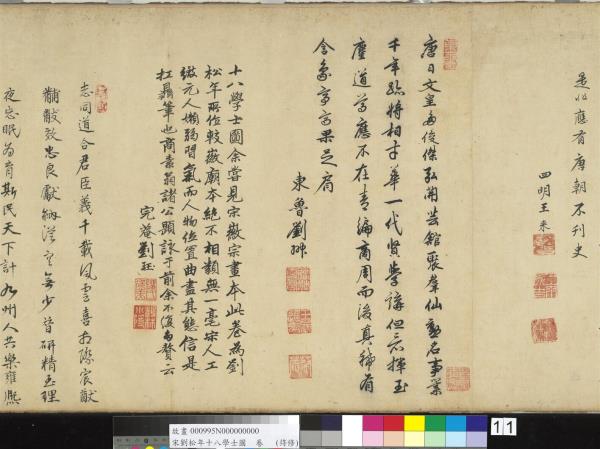 是以應有唐朝不刊史
四明王
唐日文皇多俊傑弘開芸館聚羣仙勳名事業
千年將相才華一代賢學講但忘揮玉
麈道應不在青編商周而後真稀有
含象亭高果足肩
東魯劉
十八學士圖余嘗見宋徽宗畫本此卷為劉
松年所作較徽廟本絕不相類無一毫宋人工
緻元人嫩弱習氣而人物位置曲盡其態信是
扛鼎筆也商素翁諸公題詠于前余不復為贅云
完菴劉珏
志同道合君臣義千載風雲喜相際宸猷
黼黻效忠良獻納從容無少皆研精至理
夜忘眠為育斯民天下計九州人共樂雍熙
故畫 000995N000000000
宋劉松年十八學士圖 卷 (待修)
11